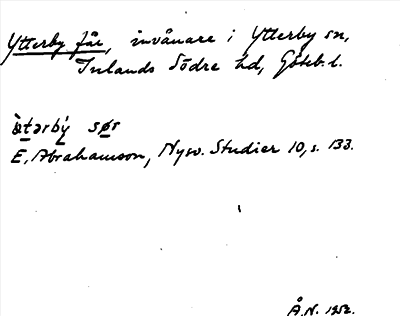 Ytterby får, invånare i Ytterby sn,
Inlands Södre hd, Göteb. l.
E. Abrahamson, Nysv. Studier 10, s. 133.
Å.N. 1952.